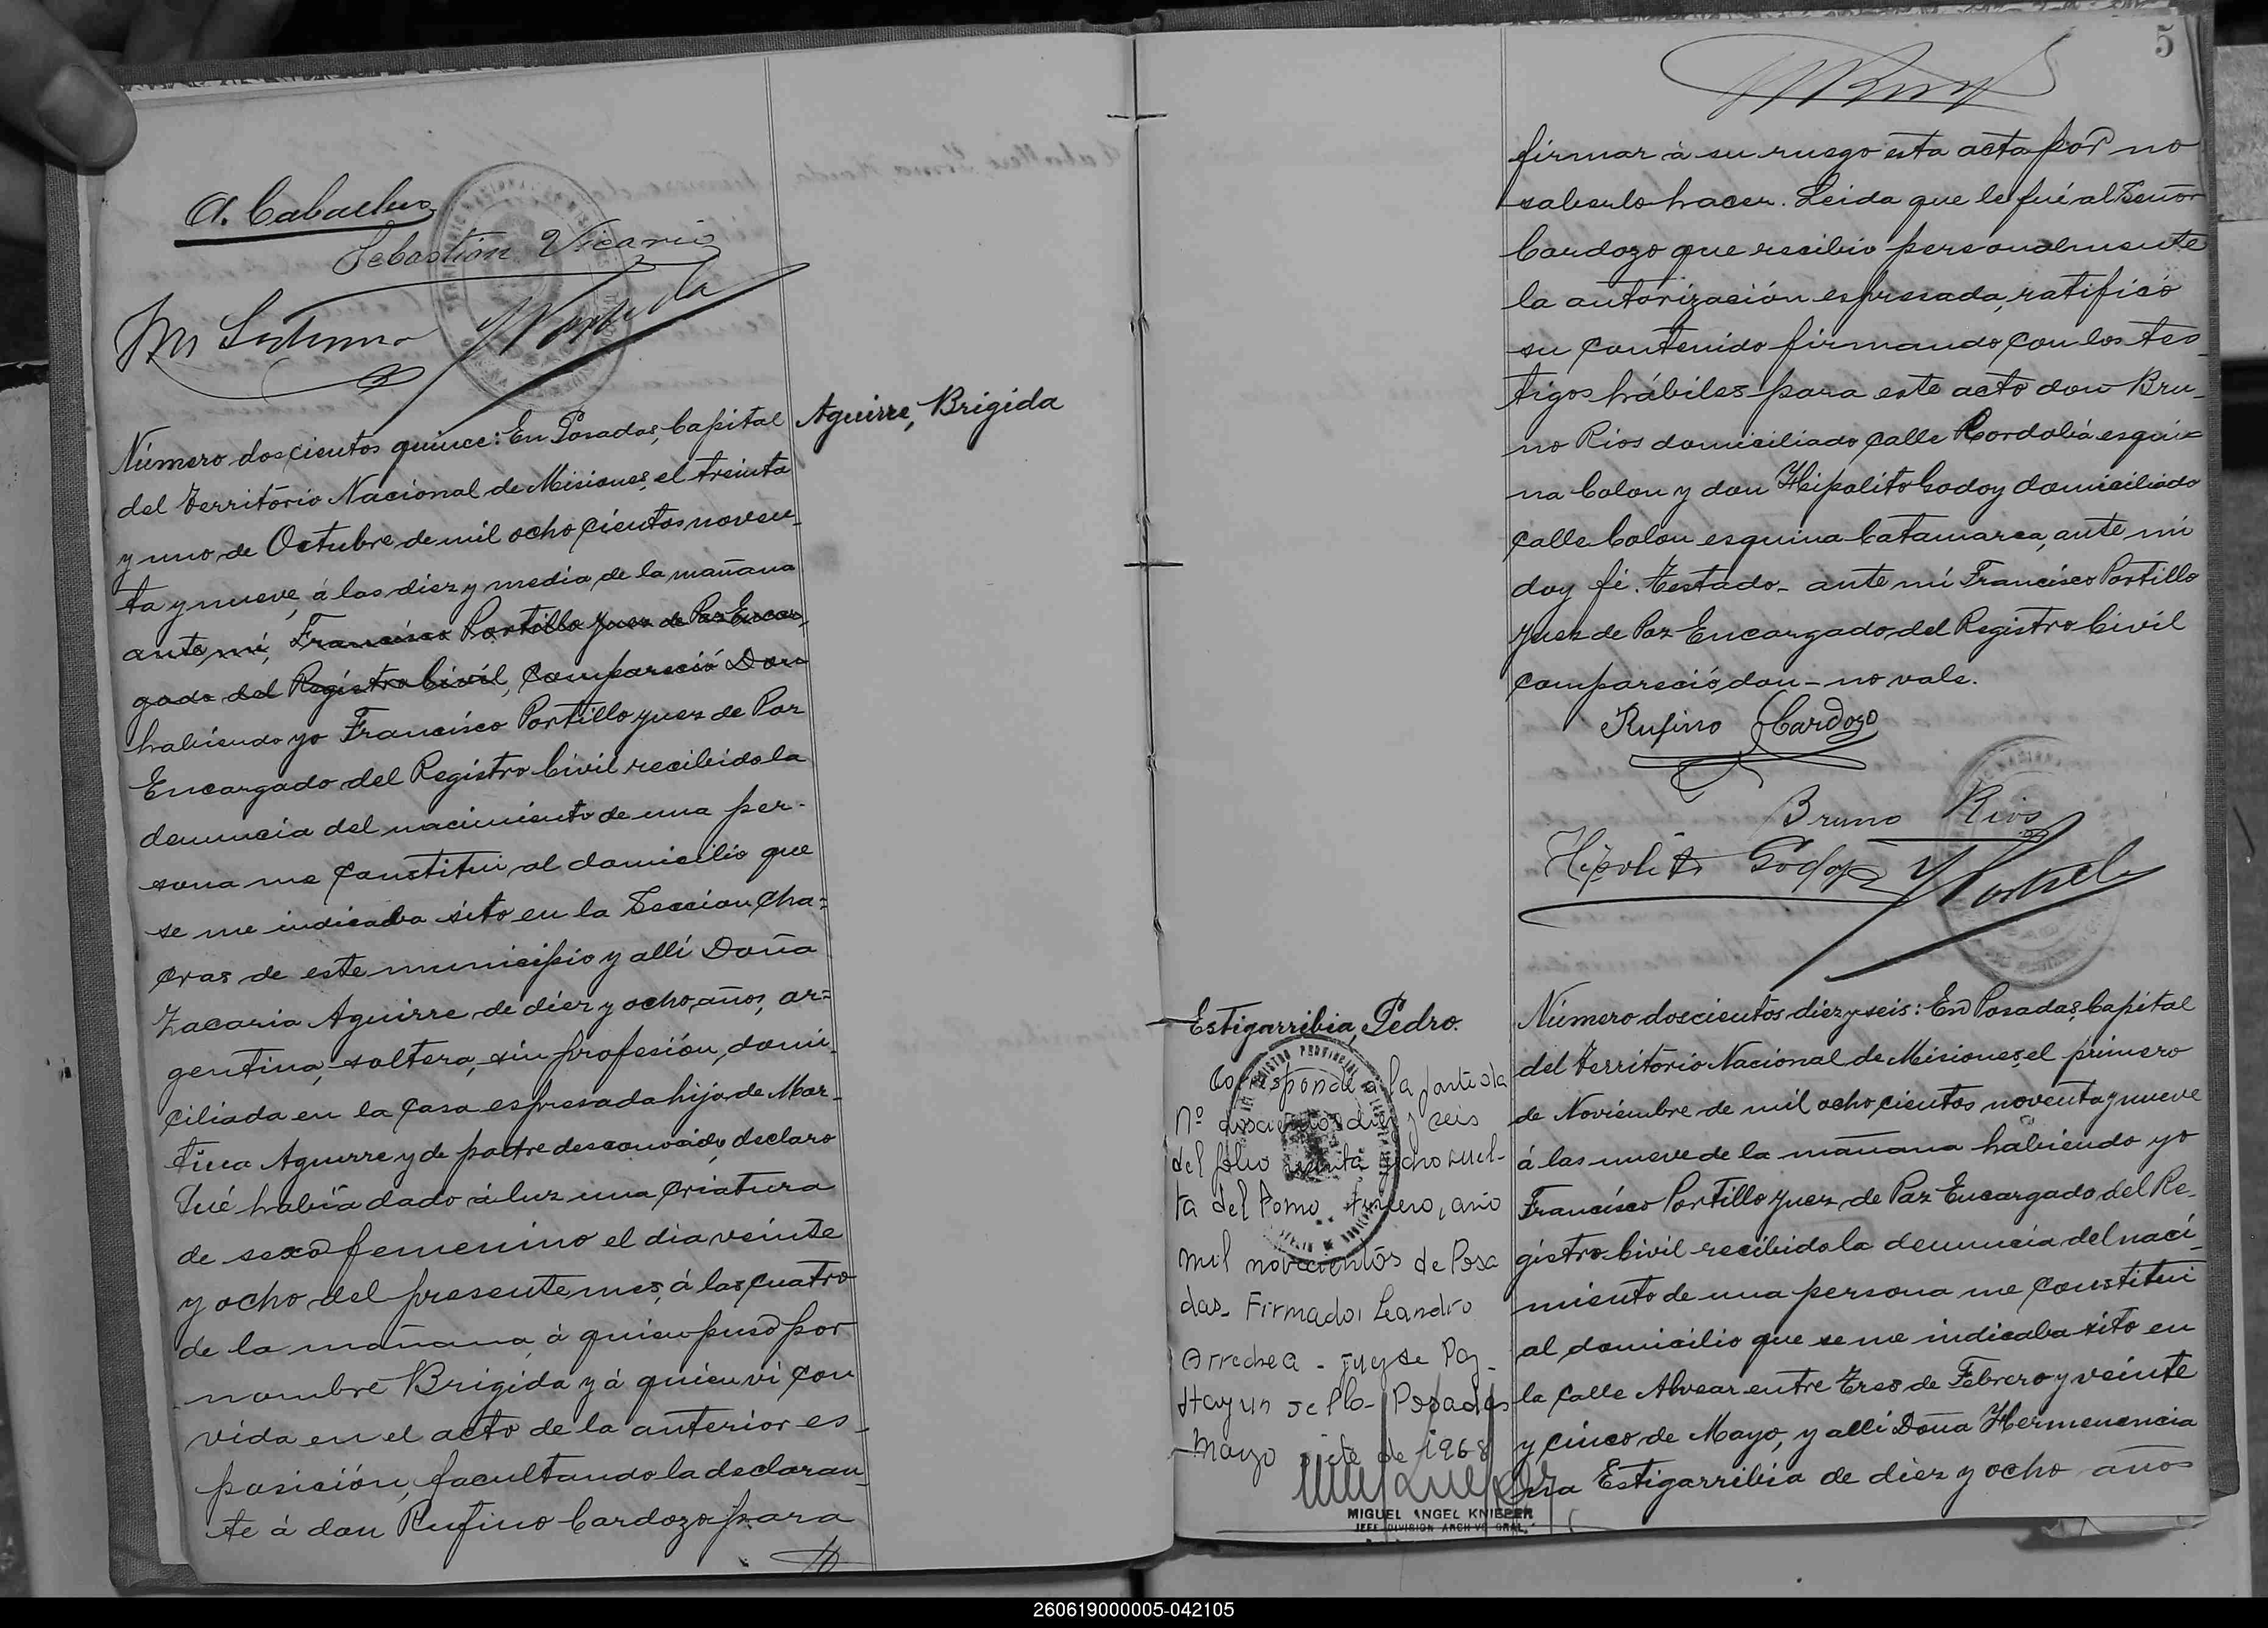 A. Caballero
Sebastian Vicario
Número doscientos quince: En Posadas, Capital
del Territorio Nacional de Misiones, el treinta
y uno de Octubre de mil ocho cientos noven_
ta y nueve, á las diez y media de la mañana
ante mi, Francisco Portillo Juez de Paz Encar_
gado del Registro Civil, compareció Don
habiendo yo Francisco Portillo Juez de Paz
Encargado del Registro Civil recibido la
denuncia del nacimiento de una per-
sona me constitui al domicilio que
se me indicaba sito en la Seccion Cha=
cras de este municipio y allí Doña
Zacaria Aguirre de diez y ocho años, ar=
gentina, soltera, sin profesión, domi_
ciliada en la casa espresada hija de Mar_
tina Aguirre y de padre desconocido, declaro
Qué había dado á luz una criatura
de sexo femenino el dia veinte
y ocho del presente mes, á las cuatro
de la mañana, á quien puso por
nombre Brigida y á quien vi con
vida en el acto de la anterior es_
posición, facultando la declaran_
te á don Rufino Cardozo para
Aguirre, Brigida
5
firmar à su ruego esta acta por no
saberlo hacer. Leida que le fué al Señor
Cardozo que recibio personalmente
la autorización espresada, ratificó
su contenido firmando con los tes_
tigos hábiles para este acto don Bru_
no Rios domiciliado calle Cordoba esqui=
na Colon y don Hipolito Godoy domiciliado
calle Colon esquina Catamarca, ante mi
doy fé. Testado_ ante mi Francisco Portillo
Juez de Paz Encargado del Registro Civil
compareció, don _ no vale.
Rufino Cardozo
Bruno Rios
Hipolito Godoy
Estigarribia, Pedro.
Corresponde a la partida
Nº doscientos diez y seis
del folio y ocho vuel-
ta del Tomo, año
mil novecientos de Posa
das_ Firmado: Leandro
Arrechea - Juez de Paz_
Hay un sello_ Posadas
Mayo siete de 1968
MIGUEL ANGEL KNIEPER
JEFE DIVISION ARCHIVO GRAL.
Número doscientos diez y seis: En Posadas, Capital
del Territorio Nacional de Misiones, el primero
de Noviembre de mil ocho cientos noventa y nueve
á las nueve de la mañana habiendo yo
Francisco Portillo Juez de Paz Encargado del Re_
gistro Civil recibido la denuncia del naci_
miento de una persona me constitui
al domicilio que se me indicaba sito en
la calle Alvear entre Tres de Febrero y veinte
y cinco de Mayo, y allí Doña Hermenencia
na Estigarribia de diez y ocho años
260619000005-042105